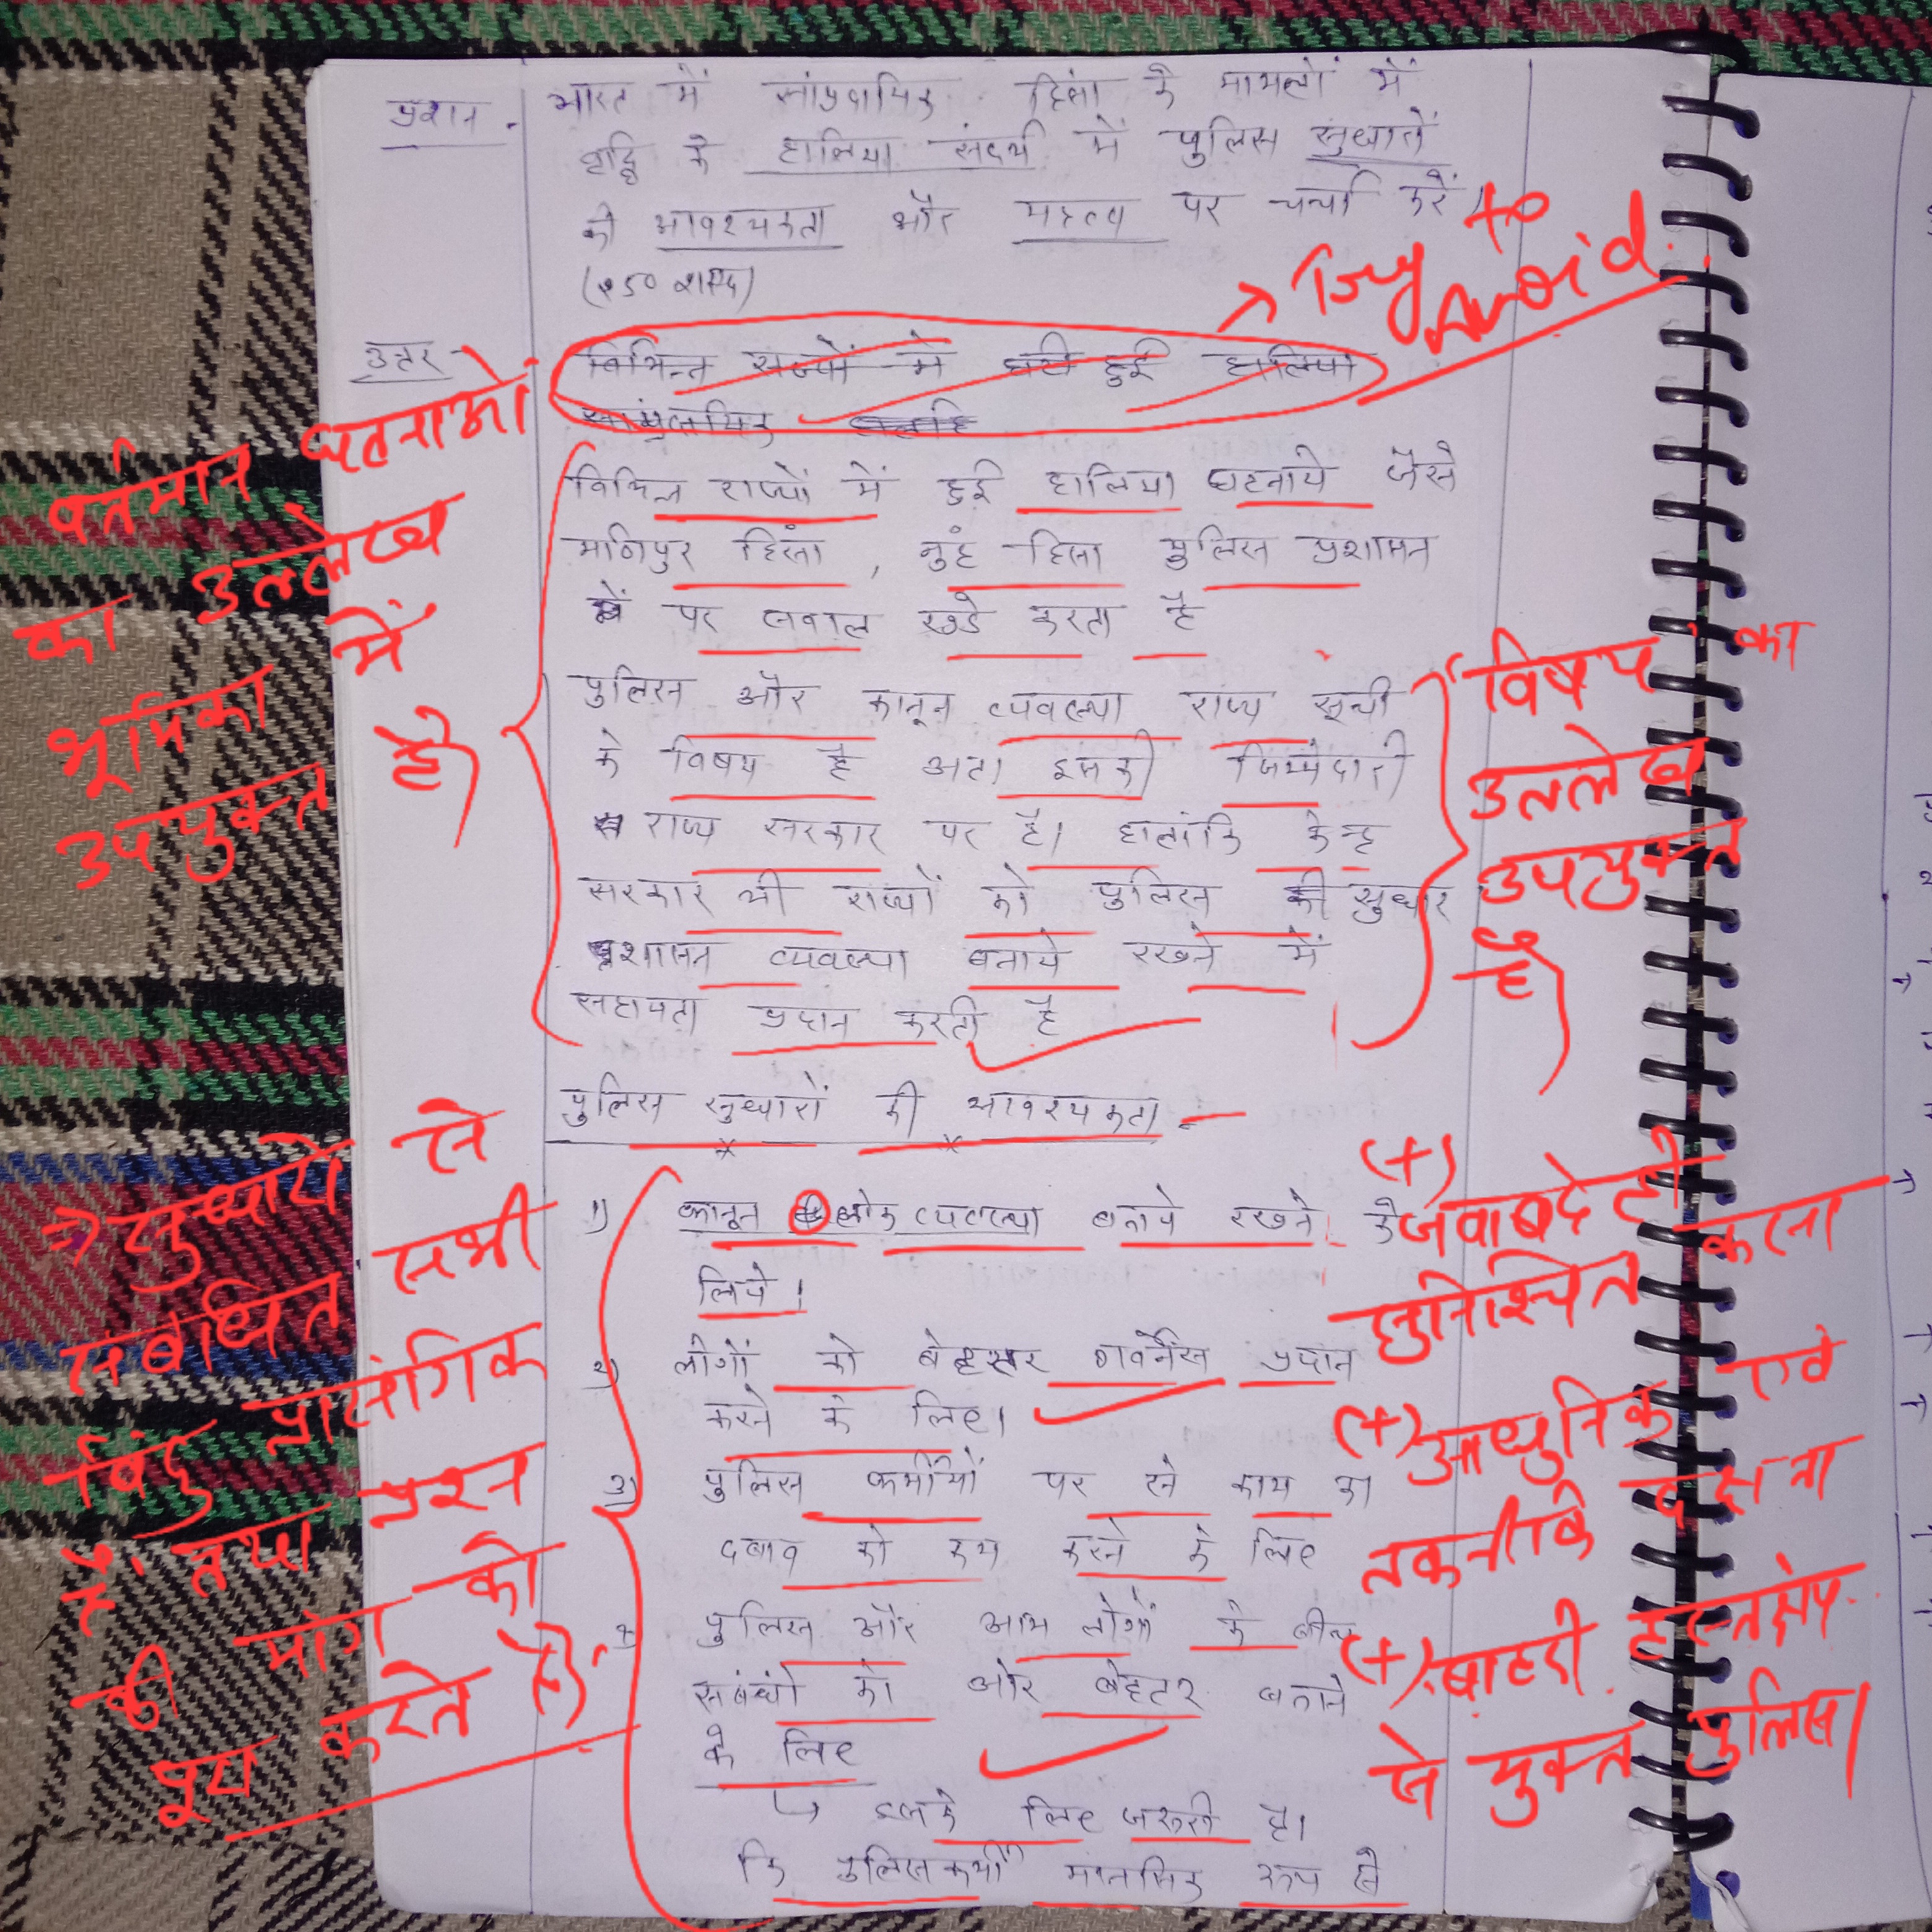 प्रशन - भारत में सांप्रदायिक हिंसा के मामलों में
वृद्धि के हालिया संदर्भ में पुलिस सुधारों
की आवश्यकता और महत्व पर चर्चा करें।
(250 शब्द)
→ Try to Avoid.
उत्तर - विभिन्न राज्यों में घटी हुई हालिया
सांप्रदायिक
विभिन्न राज्यों में हुई हालिया घटनाये जैसे
मणिपुर हिंसा, नुंह हिंसा पुलिस प्रशासन
पर सवाल खडे करता है
पुलिस और कानून व्यवस्था राज्य सूची
के विषय है अतः इसकी जिम्मेदारी
राज्य सरकार पर है। हालांकि केन्द्र
सरकार भी राज्यों को पुलिस की सुधार
प्रशासन व्यवस्था बनाये रखने में
सहायता प्रदान करती है
वर्तमान घटनाओं
का उललेख
भूमिका में
उपयुक्त है)
विषय का
उललेख
उपयुक्त
है)
पुलिस सुधारों की आवश्यकता -
1) कानून व्यवस्था बनाये रखने के
लिये।
2) लोगों को बेहतर गवर्नेंस प्रदान
करने के लिए।
3) पुलिस कर्मीयों पर से काम का
दबाव को कम करने के लिए
4) पुलिस और आम लोगों के बीच
संबंधों को और बेहटर बनाने
के लिए
↳ इसके लिए जरूरी है।
कि पुलिसकर्मी मानसिक रूप से
→ सुधारों से
संबंधित सभी
बिंदु प्रासंगिक
हैं तथा प्रश्न
की मांग को
पूरा करते हैं)
(+) जवाबदेही
सुनिश्चित करना
(+) आधुनिक एवं
तकनीकि दक्षता
(+) बाहरी हस्तक्षेप
से मुक्त पुलिस।